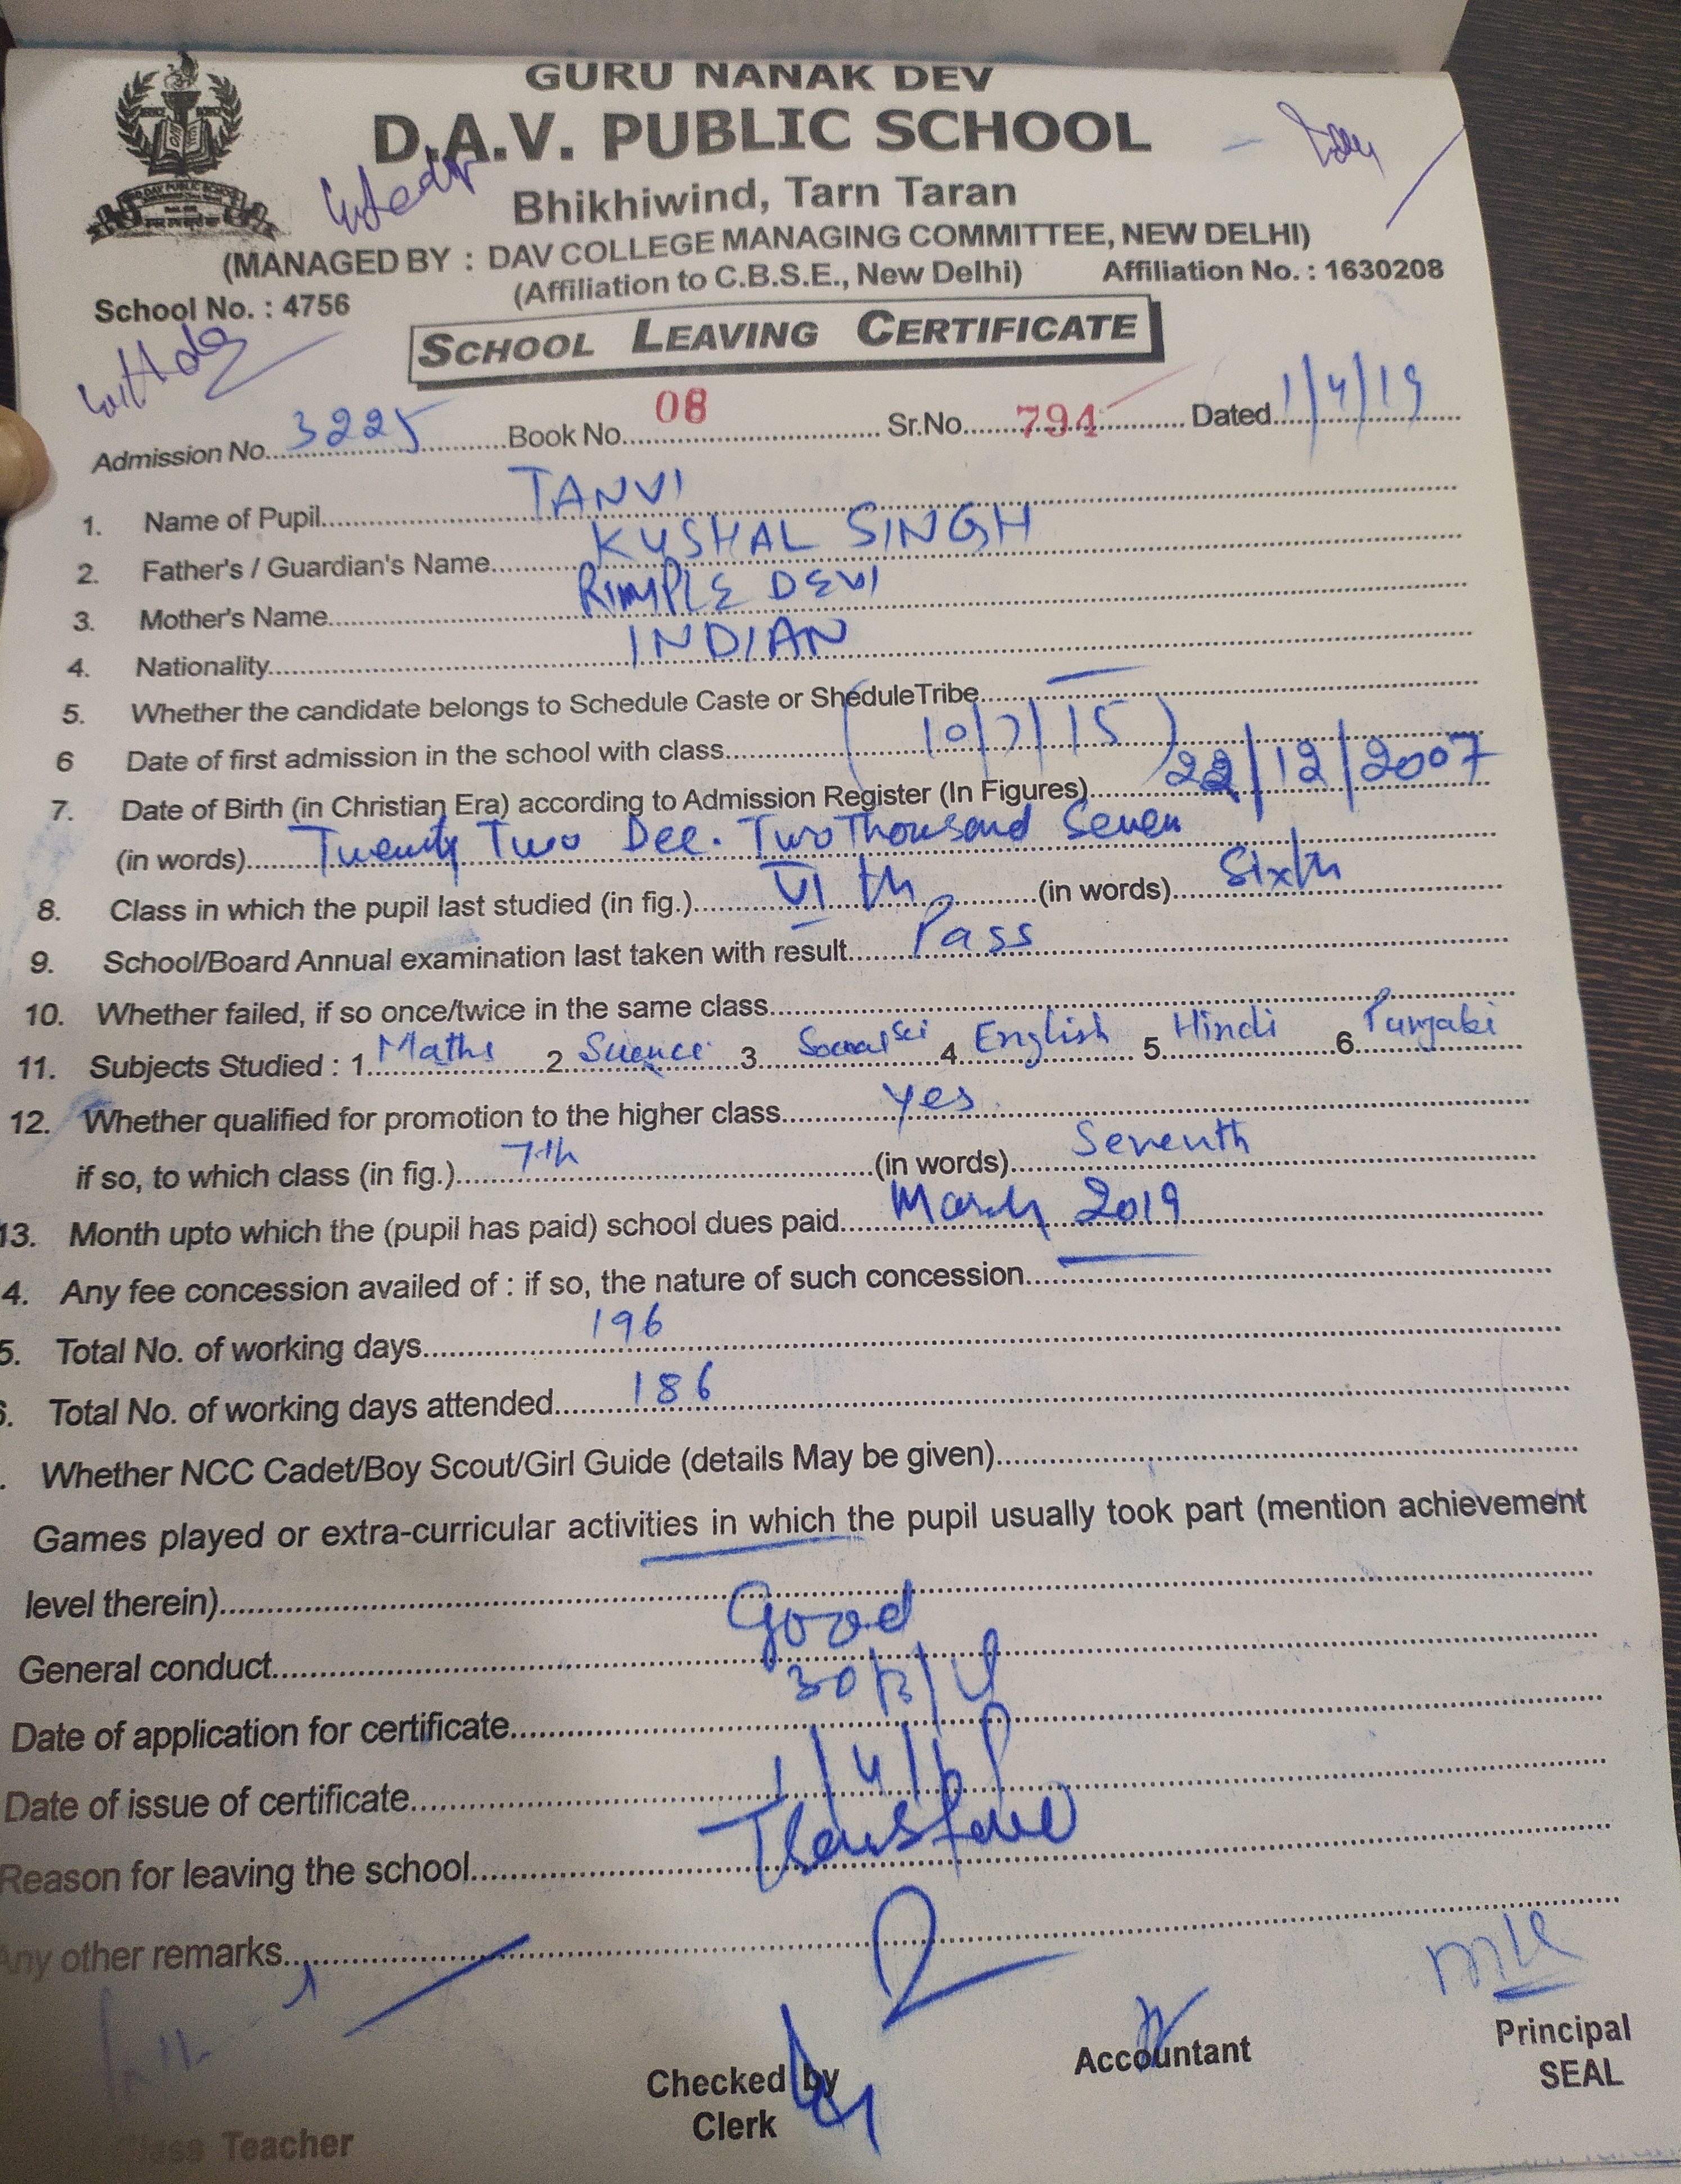 GURU NANAK DEV
D.A.V. PUBLIC SCHOOL
Bhikhiwind, Tarn Taran
(MANAGED BY : DAV COLLEGE MANAGING COMMITTEE, NEW DELHI)
(Affiliation to C.B.S.E., New Delhi) Affiliation No. : 1630208
School No. : 4756
SCHOOL LEAVING CERTIFICATE
Admission No. 3225 Book No. 08 Sr.No. 794 Dated 1/4/19
1. Name of Pupil TANVI
2. Father's / Guardian's Name KUSHAL SINGH
3. Mother's Name RIMPLE DEVI
4. Nationality INDIAN
5. Whether the candidate belongs to Schedule Caste or SheduleTribe —
6 Date of first admission in the school with class (10/7/15)
7. Date of Birth (in Christian Era) according to Admission Register (In Figures) 22/12/2007
(in words) Twenty Two Dec. Two Thousand Seven
8. Class in which the pupil last studied (in fig.) VI th (in words) Sixth
9. School/Board Annual examination last taken with result Pass
10. Whether failed, if so once/twice in the same class
11. Subjects Studied : 1 Maths 2 Science 3 Social Sci 4 English 5 Hindi 6 Punjabi
12. Whether qualified for promotion to the higher class Yes
if so, to which class (in fig.) 7th (in words) Seventh
13. Month upto which the (pupil has paid) school dues paid March 2019
4. Any fee concession availed of : if so, the nature of such concession —
5. Total No. of working days 196
6. Total No. of working days attended 186
. Whether NCC Cadet/Boy Scout/Girl Guide (details May be given)
Games played or extra-curricular activities in which the pupil usually took part (mention achievement
level therein)
General conduct Good
Date of application for certificate 30/3/19
Date of issue of certificate 1/4/19
Reason for leaving the school
Any other remarks
Class Teacher Checked by Accountant Principal
Clerk SEAL